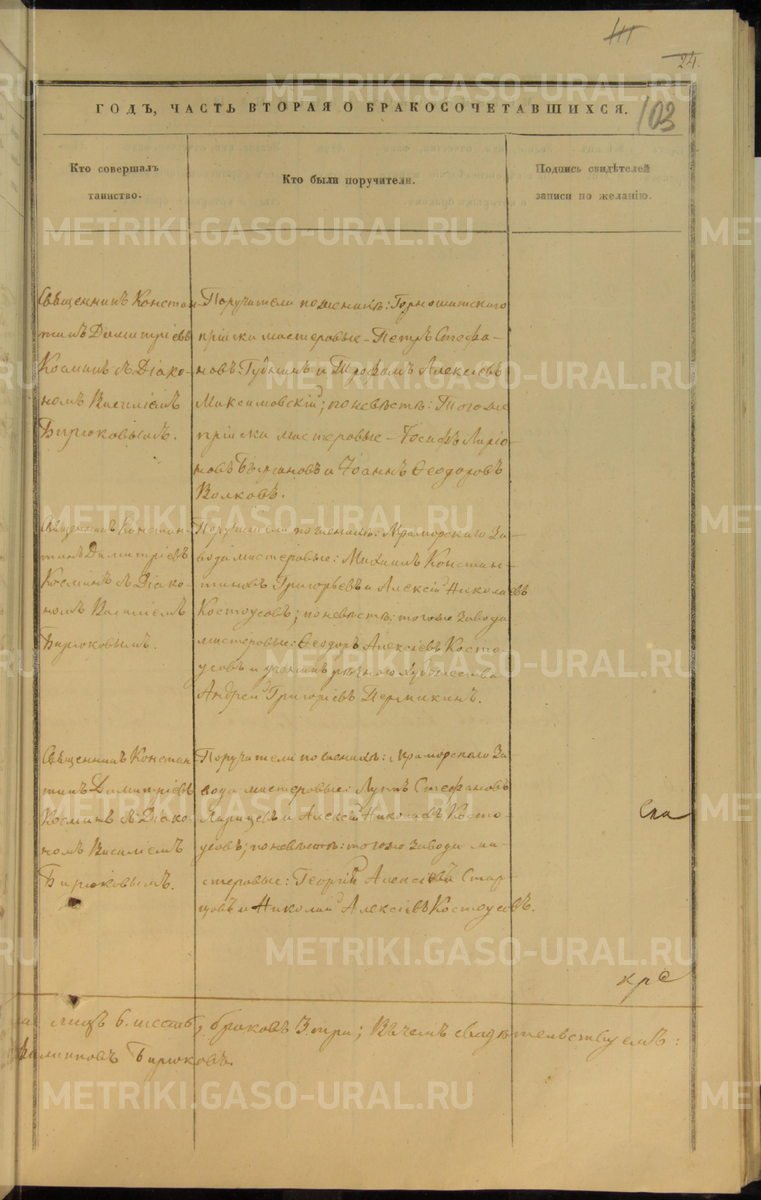 24.
103
ГОДЪ, ЧАСТЬ ВТОРАЯ О БРАКОСОЧЕТАВШИХСЯ.
Кто совершалъ
таинство.
Кто были поручители.
Подпись свидѣтелей
записи по желанію.
Священникъ Констан
тинъ Димитріевъ
Косминъ съ Діако-
номъ Василіемъ
Бирюковымъ.
Поручители по женихѣ: Горнощитскаго
пріиска мастеровые - Петръ Стефа-
новъ Губкинъ и Трофимъ Алексѣевъ
Максимовскій; по невѣстѣ: Того же
пріиска мастеровые - Іосифъ Ларіо
новъ и Іоаннъ Ѳеодоровъ
Волковъ.
Священникъ Констан-
тинъ Димитріевъ
Косминъ съ Діако-
номъ Василіемъ
Бирюковымъ.
Поручители по женихѣ: Мраморскаго За-
вода мастеровые: Михаилъ Констан-
тиновъ Григорьевъ и Алексѣй Николаевъ
Костоусовъ; по невѣстѣ: того же Завода
мастеровые: Ѳеодоръ Алексѣевъ Косто
усовъ и
Андрей Григоріевъ Пермикинъ.
Священникъ Констан
тинъ Димитріевъ
Косминъ съ Діако-
номъ Василіемъ
Бирюковымъ.
Поручители по женихѣ: Мраморскаго За
вода мастеровые: Лука Стефановъ
и Алексѣй Николаевъ Косто-
усовъ; по невѣстѣ: того же Завода ма-
стеровые: Георгій Алексѣевъ Стар-
цовъ и Николай Алексѣевъ Костоусовъ.
лицъ 6. шесть, браковъ 3. три; В чемъ свидѣтельствуемъ:
Бирюковъ.
METRIKI.GASO-URAL.RU